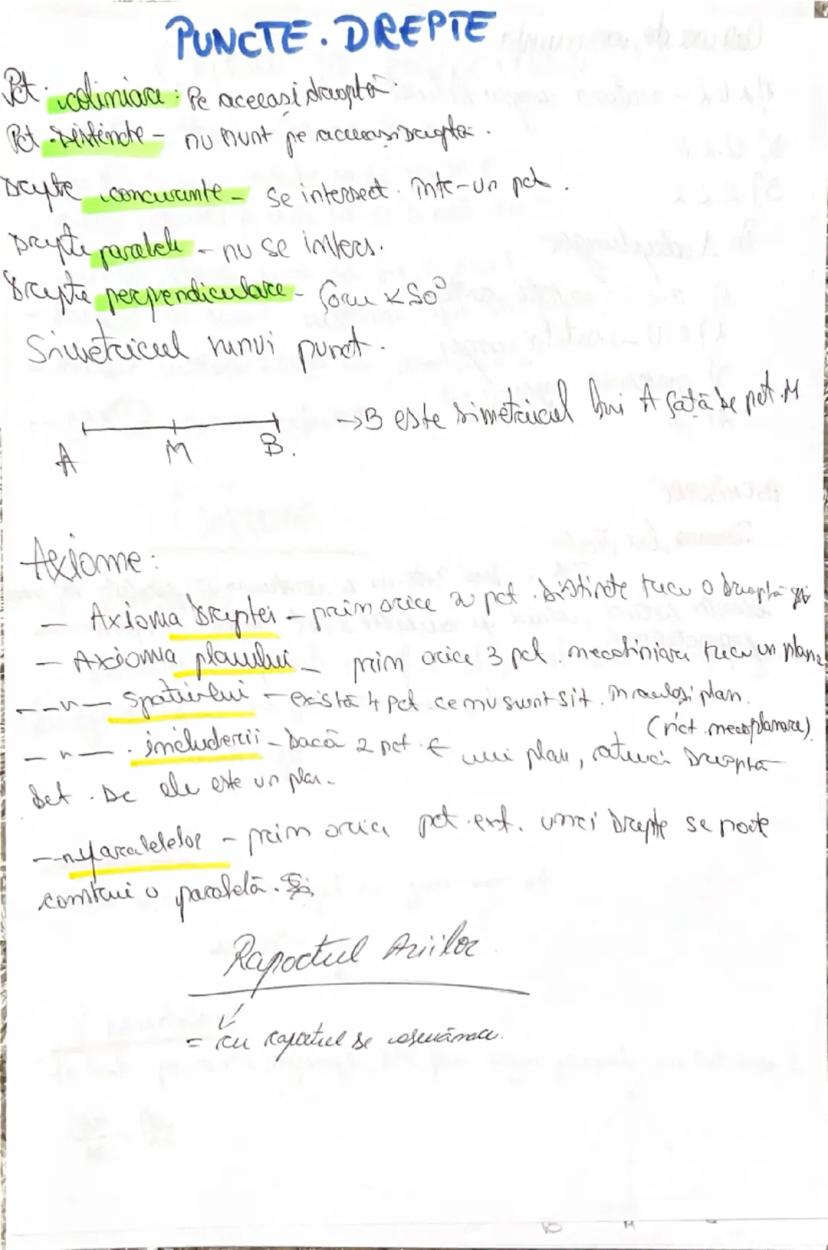 PUNCTE. DREPTE
Pct. coliniare: Pe aceeași dreaptă.
Pct. distincte - nu sunt pe aceeași dreaptă.
Drepte concurente - se intersect. într-un pct.
Drepte paralele - nu se inters.
Drepte perpendiculare - form ∢90°
Simetricul unui punct.
→B este simetricul lui A față de pct. M
A M B.
Axiome:
- Axioma Dreptei - prin orice 2 pct. distincte trece o dreaptă
- Axioma planului - prin orice 3 pct. necoliniare trece un plan
-"- spațiului - există 4 pct ce nu sunt sit. în același plan.
(pct. necoplanare)
-"- includerii - Dacă 2 pct. ∈ unui plan, atunci Dreapta
det. de ele este un plan.
-"- paralelelor - prin orice pct. ext. unei Drepte se poate
construi o paralelă.
Raportul Ariilor
= cu raportul de asemănare.